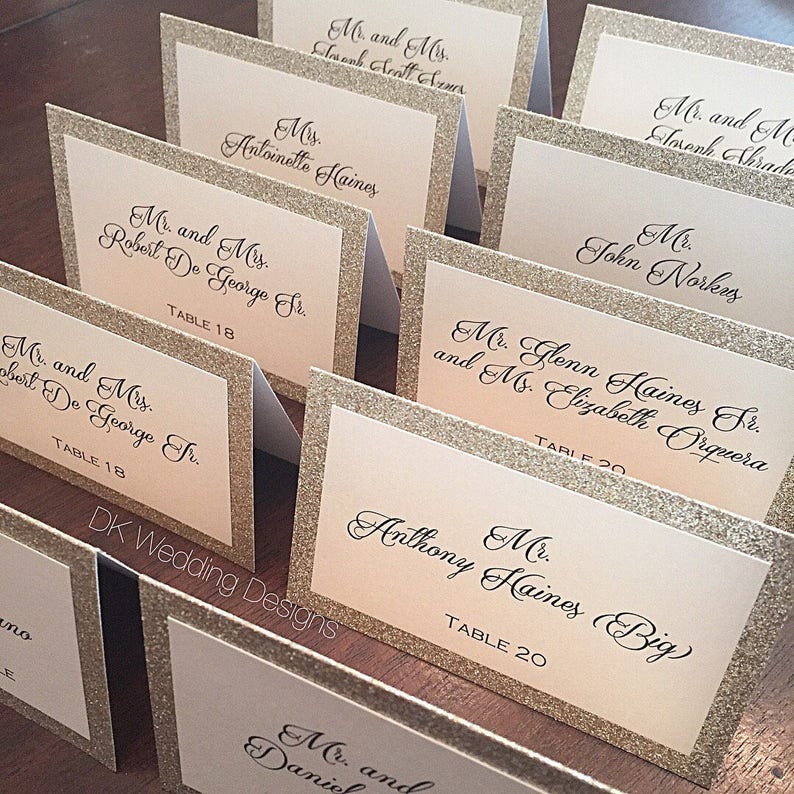 Mr. and Mrs.
Joseph Scott
Mr. and
Joseph Shrade
Mrs.
Antoinette Haines
Mr.
John Norkus
Mr. and Mrs.
Robert De George Sr.
TABLE 18
Mr. Glenn Haines Sr.
and Ms. Elizabeth Orquera
TABLE 20
Mr. and Mrs.
Robert De George Jr.
TABLE 18
Mr.
Anthony Haines (Big)
TABLE 20
DK Wedding Designs
ano
LE
Mr. and
Daniel